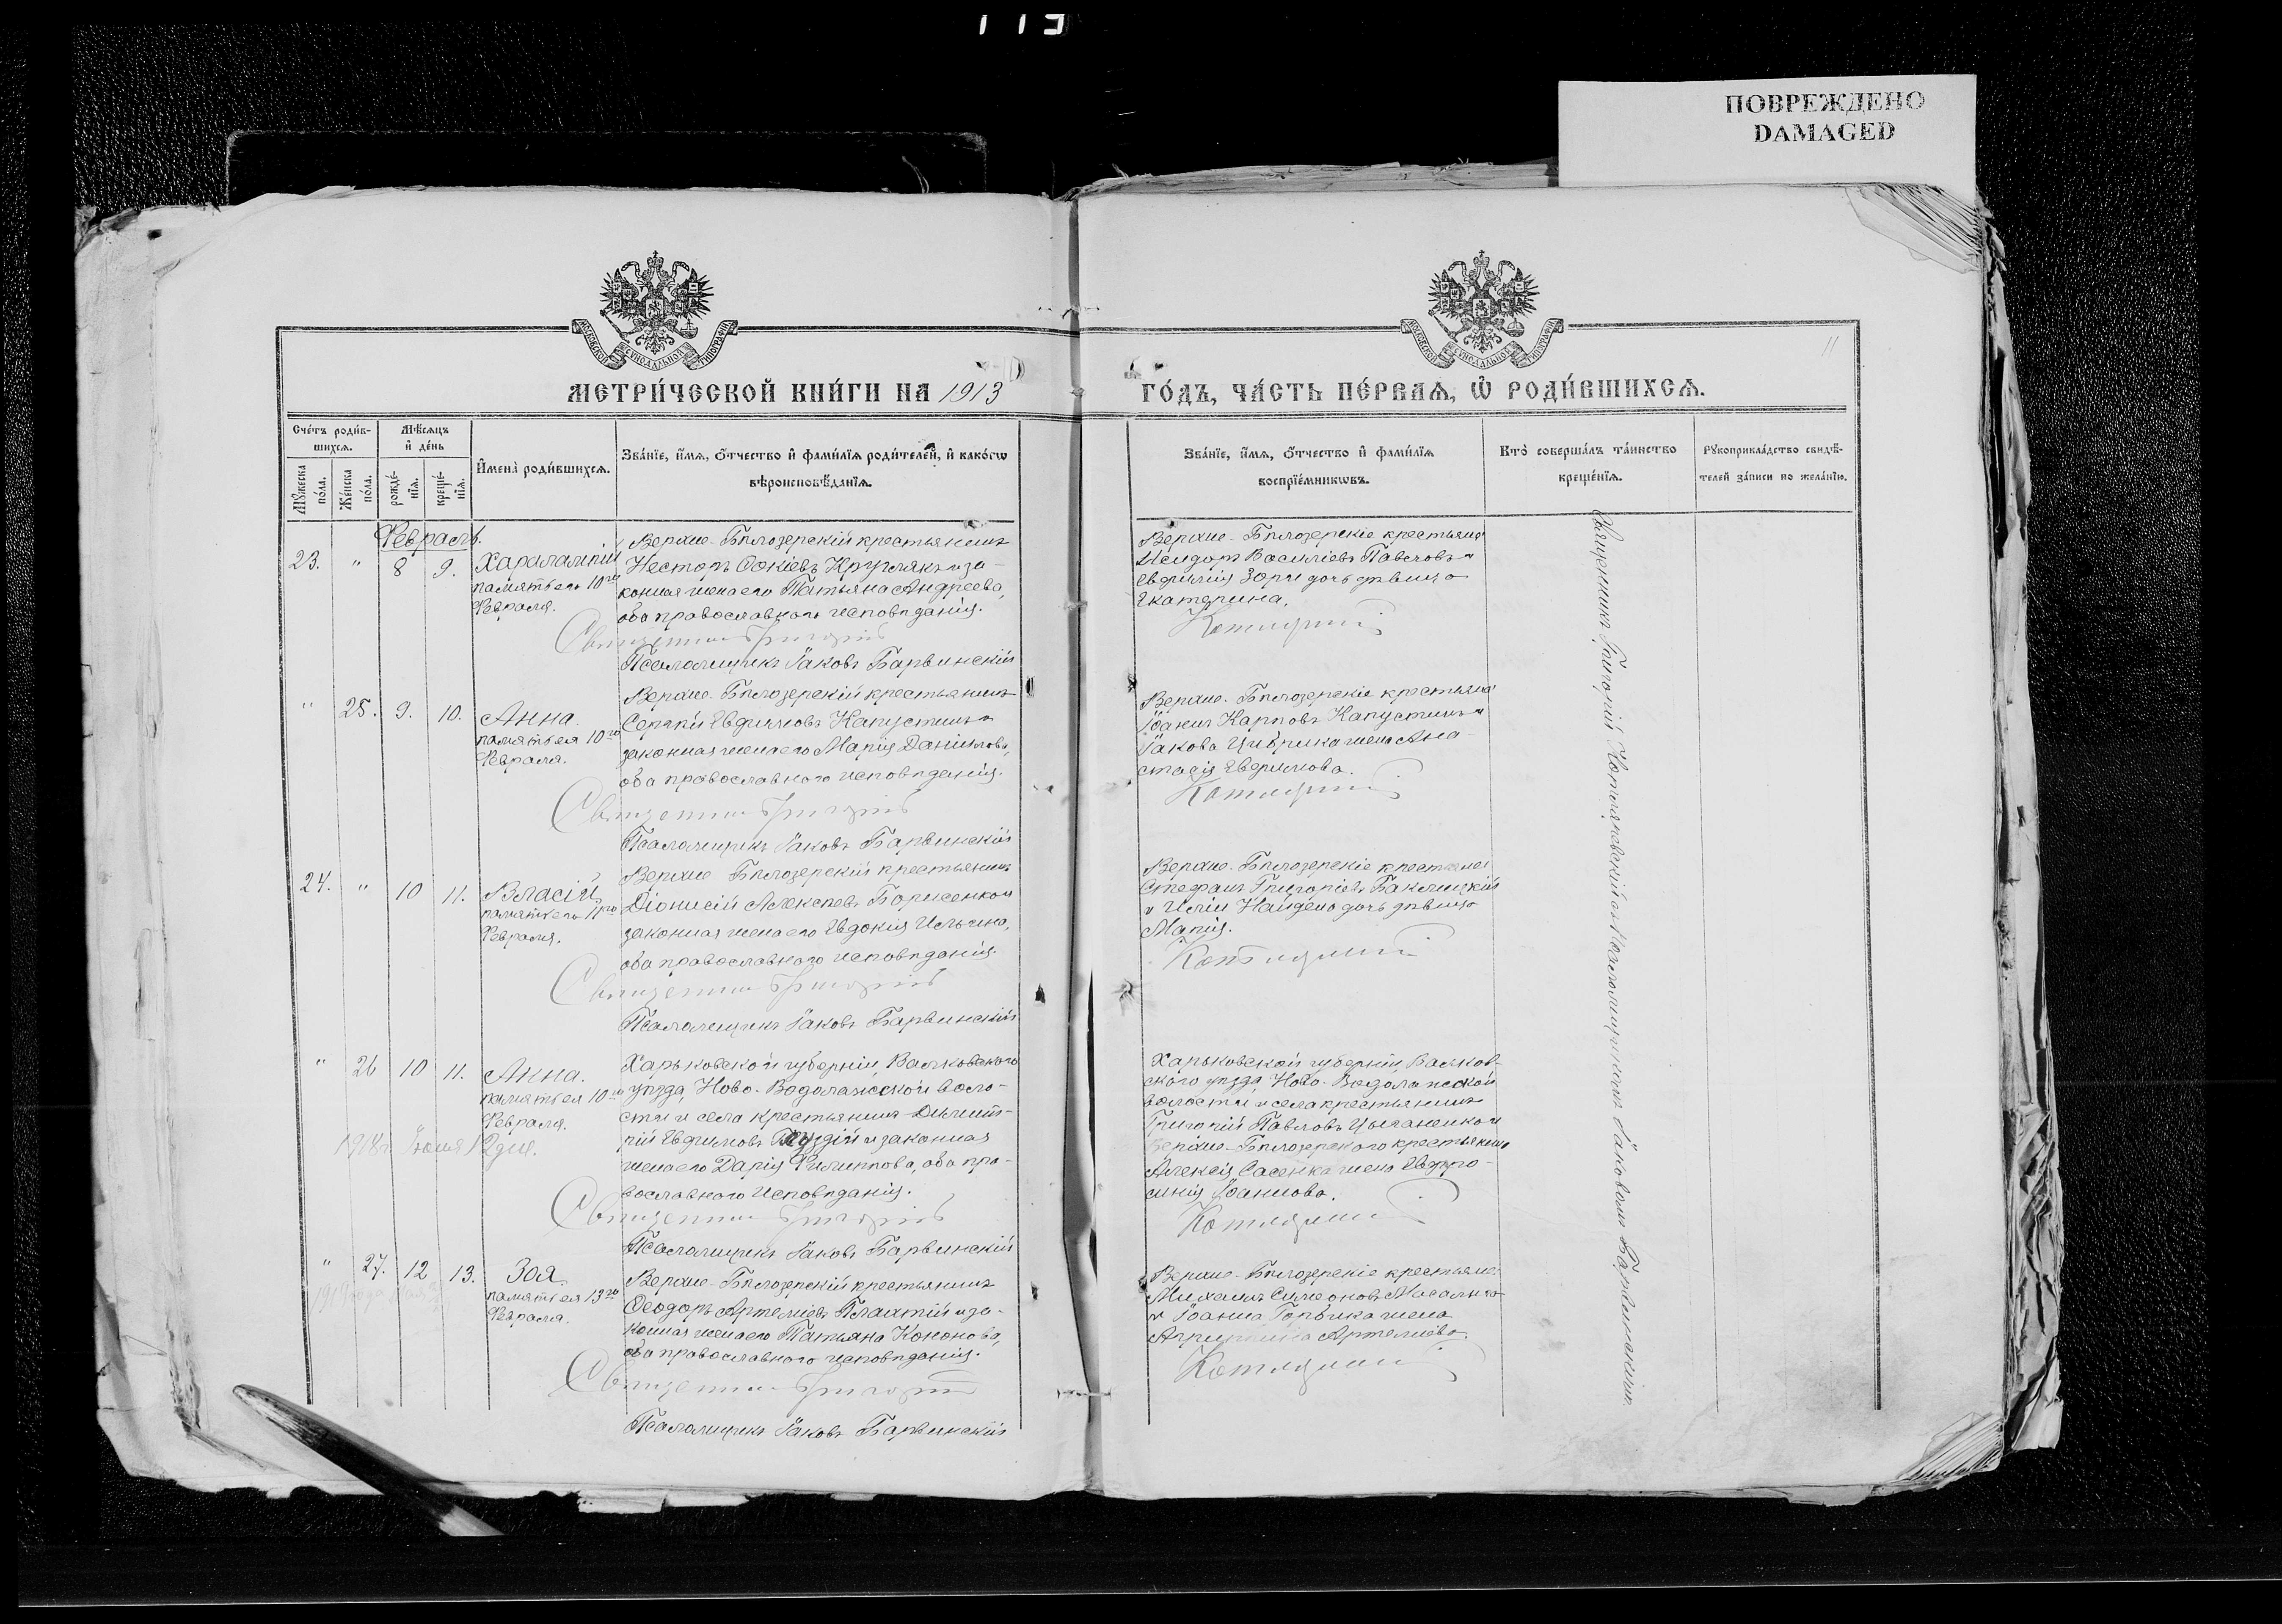 ПОВРЕЖДЕНО
DAMAGED
11
МЕТРИ́ЧЕСКОЙ КНИ́ГИ НА 1913
ГО́ДЪ, ЧА́СТЬ ПЕ́РВАЯ, Ѡ҆ РОДИ́ВШИХСЯ.
Сче́тъ роди́в-
шихся.
Мѣ́сяцъ
и҆ де́нь
Мꙋ́жеска
по́ла.
Же́нска
по́ла.
рожде́-
нїя.
креще́-
нїя.
И҆мена̀ роди́вшихся.
Зва́нїе, и҆́мя, ѻ҆́тчество и҆ фами́лїя роди́телей, и҆ како́гѡ
вѣроисповѣ́данїя.
Зва́нїе, и҆́мя, ѻ҆́тчество и҆ фами́лїя
воспрїе́мникѡвъ.
Кто̀ соверша́лъ та́инство
креще́нїя.
Рꙋкоприкла́дство свидѣ́-
телей за́писи по жела́нїю.
Февраль.
23. " 8 9. Харалампій
память его 10го
Февраля.
Верхне-Бѣлозерскій крестьянинъ
Несторъ Фокіевъ Кругляк и за-
конная жена его Татьяна Андреева,
оба православнаго исповѣданія.
Священникъ Григорій
Псаломщикъ Іаковъ Барвинскій
Верхне-Бѣлозерскіе крестьяне
Исидоръ Василіевъ Павловъ и
Евфимія Зори дочь дѣвица
Екатерина.
" 25. 9. 10. Анна.
память ея 10го
Февраля.
Верхне-Бѣлозерскій крестьянинъ
Сергѣй Евфимовъ Капустинъ и
законная жена его Марія Даніилова,
оба православнаго исповѣданія.
Священникъ Григорій
Псаломщикъ Іаковъ Барвинскій
Верхне-Бѣлозерскіе крестьяне
Іоаннъ Карповъ Капустинъ и
Іакова Цибрика жена Ана-
стасія Евфимова.
24. " 10 11. Власій,
память его 11го
Февраля.
Верхне Бѣлозерскій крестьянинъ
Діонисій Алексѣевъ Борисенко и
законная жена его Евдокія Ильина,
оба православнаго исповѣданія.
Священникъ Григорій
Псаломщикъ Іаковъ Барвинскій
Верхне-Бѣлозерскіе крестьяне
Стефанъ Григоріевъ Баклицкій
и Иліи Найдёна дочь дѣвица
Марія.
" 26 10 11. Анна.
память ея 10го
Февраля.
1918г. Іюня 12 дня.
Харьковской губерніи, Валковскаго
уѣзда, Ново-Водолажской воло-
сти и села крестьянинъ Димит-
рій Евфимовъ и законная
жена его Дарія Филиппова, оба пра-
вославнаго исповѣданія.
Священникъ Григорій
Псаломщикъ Іаковъ Барвинскій
Харьковской губерніи, Валков-
скаго уѣзда Ново-Водолажской
волости и села крестьянинъ
Григорій Павловъ Цыганенко и
Верхне-Бѣлозерскаго крестьянина
Алексія Сасенка жена Евфро-
синія Іоаннова.
" 27. 12 13. Зоя.
память ея 13го
Февраля.
Верхне-Бѣлозерскій крестьянинъ
Ѳеодоръ Артеміевъ Плахтій и за-
конная жена его Татьяна Кононова,
оба православнаго исповѣданія.
Священникъ Григорій
Псаломщикъ Іаковъ Барвинскій
Верхне-Бѣлозерскіе крестьяне
Михаилъ Симеоновъ
и Іоанна жена
Артеміева.
Священникъ Григорій съ псаломщикомъ Іаковомъ Барвинскимъ.